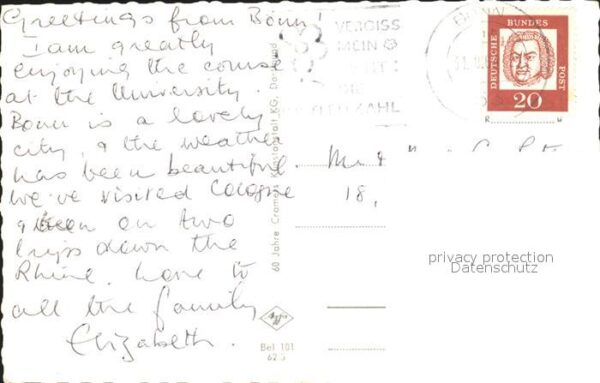 Greetings from Bonn!
I am greatly
enjoying the course
at the University.
Bonn is a lovely
city, & the weather
has been beautiful.
We've visited Cologne
& been on two
trips down the
Rhine. Love to
all the family
Elizabeth.
60 Jahre Cramers Kunstanstalt KG, Dortmund
Bel 101
62 S
VERGISS
MEIN
NICHT
DIE
POSTLEITZAHL
BONN
DEUTSCHE BUNDESPOST
20
R
Mr &
18,
privacy protection
Datenschutz